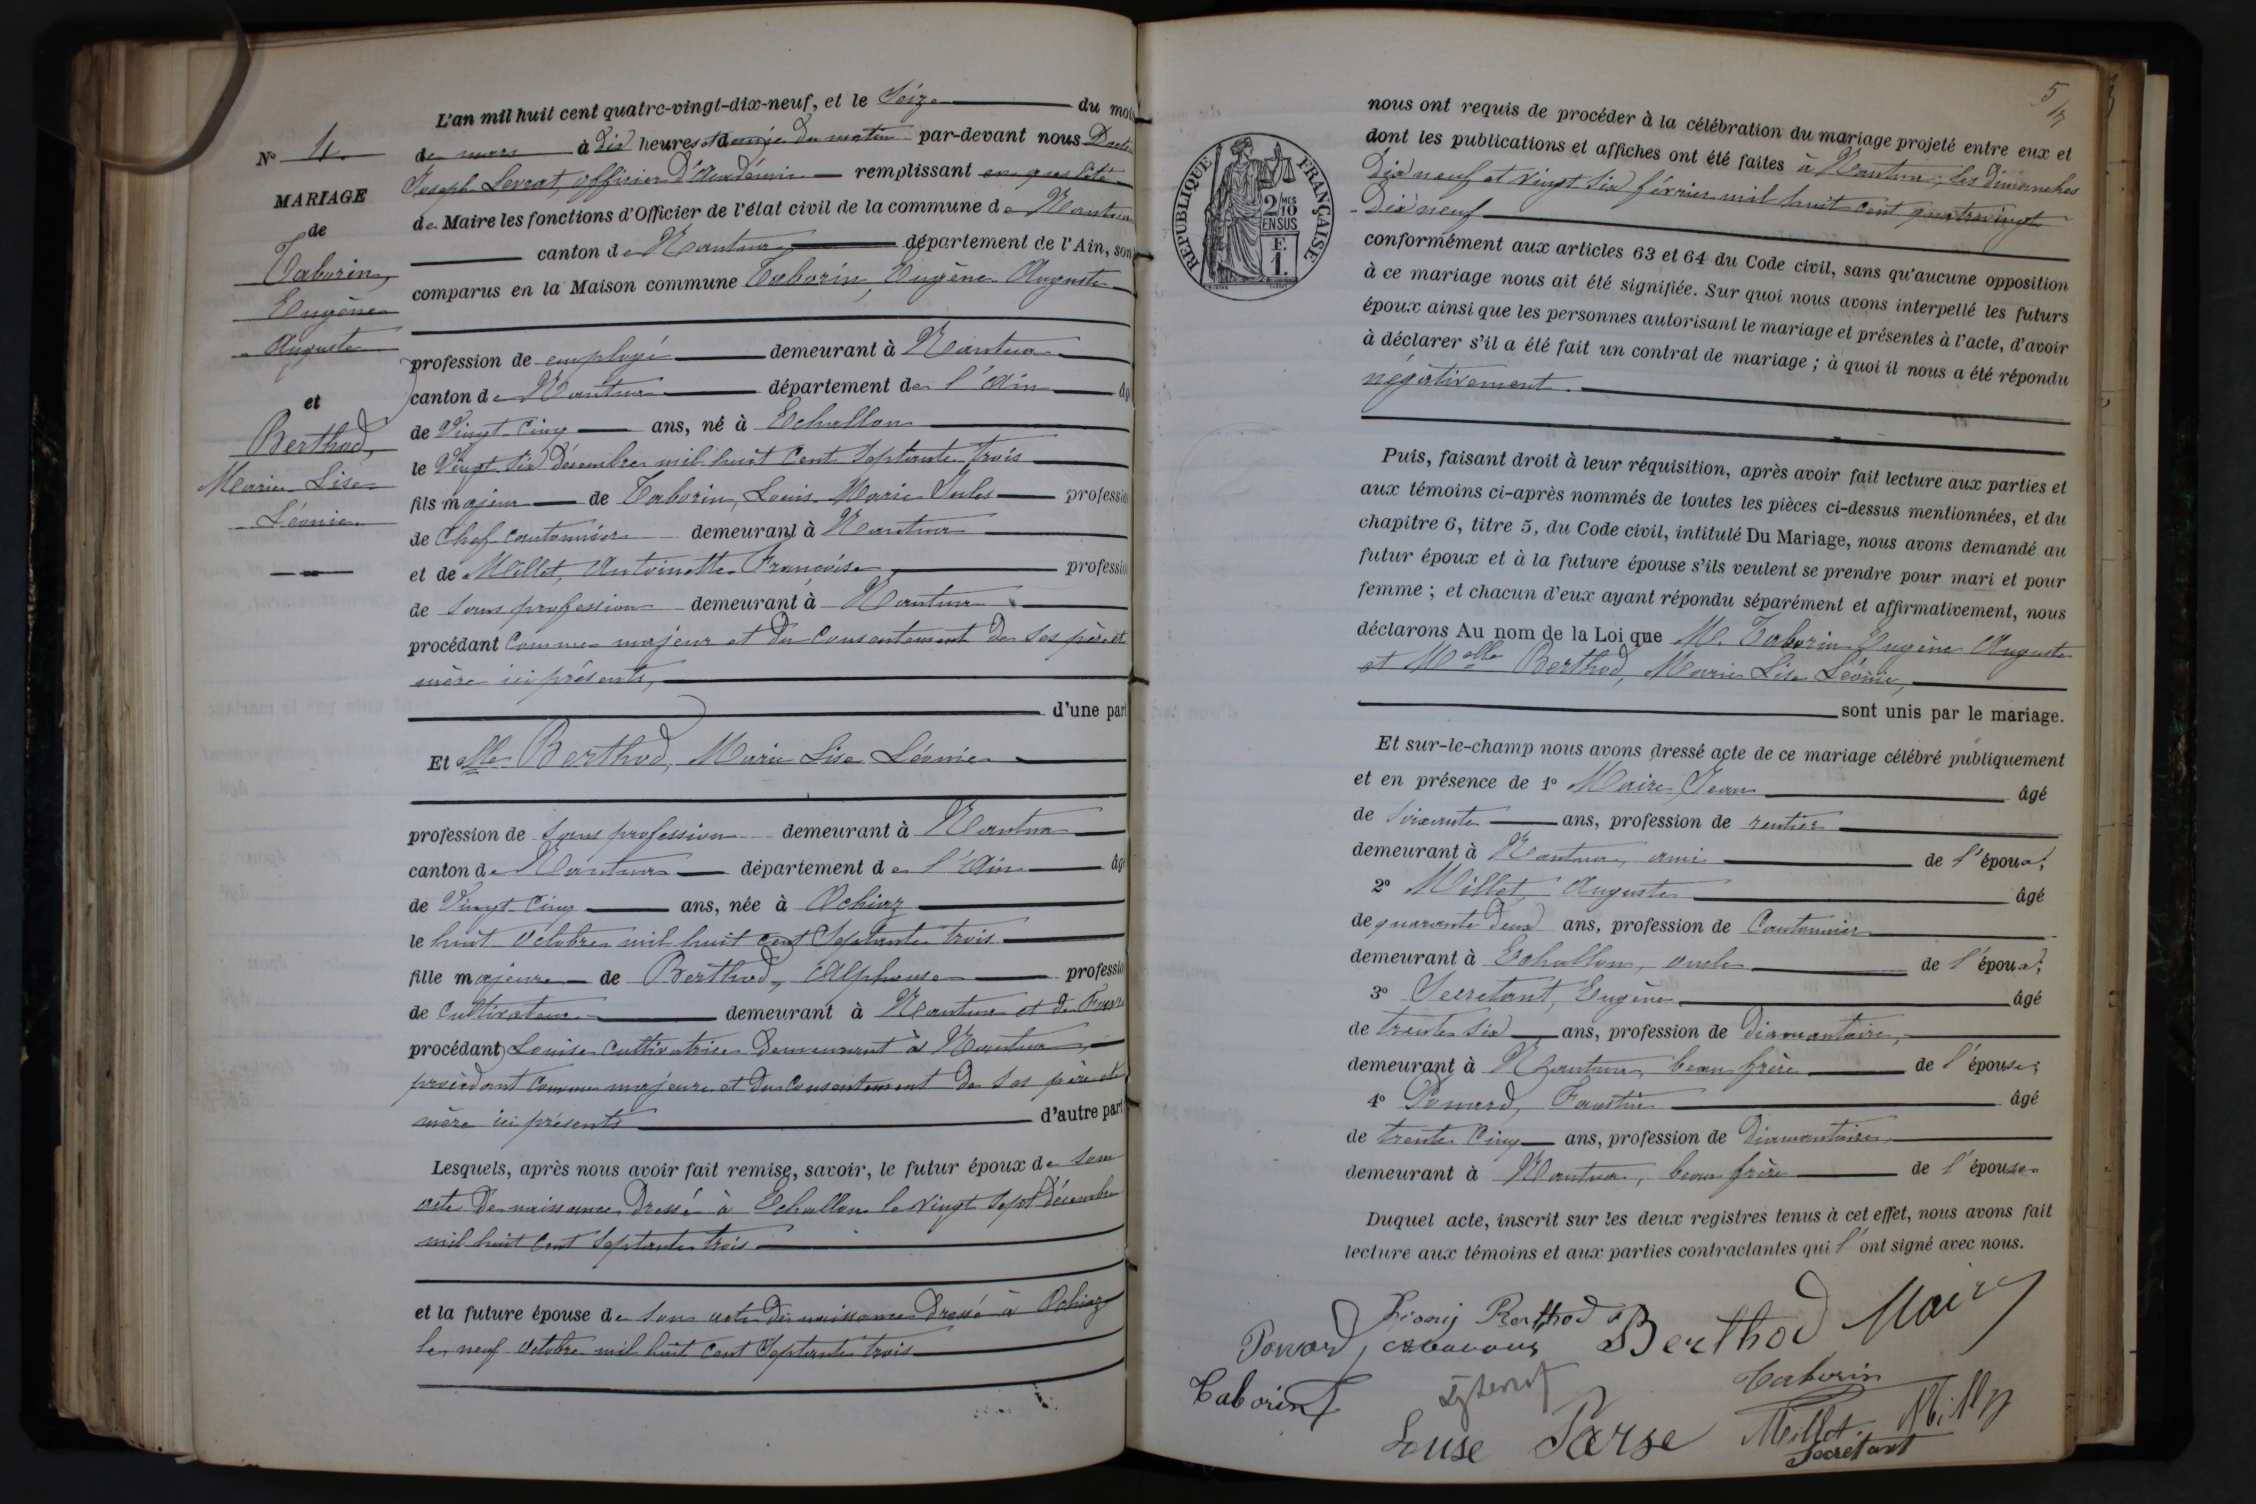 L'an mil huit cent quatre-vingt-dix-neuf, et le Seize du mois
de mars à Dix heures et demie du matin par-devant nous
Joseph Levrat, officier D'académie remplissant en qualité
de Maire les fonctions d'Officier de l'état civil de la commune de Nantua
canton de Nantua département de l'Ain, sont
comparus en la Maison commune Taborin, Eugène Auguste
profession de employé demeurant à Nantua
canton de Nantua département de l'Ain âgé
de Vingt cinq ans, né à Echallon
le Vingt six décembre mil huit cent septante trois
fils majeur de Taborin, Louis Marie Jules profession
de Chef cantonnier demeurant à Nantua
et de Millet, Antoinette Françoise profession
de sans profession demeurant à Nantua
procédant comme majeur et du consentement de ses père et
mère ici présents,
d'une part
Et Mlle Berthod, Marie Lise Léonie
profession de sans profession demeurant à Nantua
canton de Nantua département de l'Ain âgé
de Vingt cinq ans, née à Ochiaz
le huit octobre mil huit cent septante trois
fille majeure de Berthod, Alphonse profession
de Cultivateur demeurant à Nantua et de
procédant Louise cultivatrice demeurant à Nantua,
procédant comme majeure et du consentement de ses père et
mère ici présents d'autre part
Lesquels, après nous avoir fait remise, savoir, le futur époux de son
acte de naissance Dressé à Echallon le vingt sept décembre
mil huit cent septante trois
et la future épouse de son acte de naissance Dressé à Ochiaz
le neuf octobre mil huit cent septante trois
N° 4.
MARIAGE
de
Taborin,
Eugène
Auguste
et
Berthod,
Marie Lise
Léonie
5
nous ont requis de procéder à la célébration du mariage projeté entre eux et
dont les publications et affiches ont été faites à Nantua, les dimanches
Dix neuf et vingt six février mil huit cent quatre vingt
Dix neuf
RÉPUBLIQUE FRANÇAISE
2/10 MES
EN SUS
F
1.
conformément aux articles 63 et 64 du Code civil, sans qu'aucune opposition
à ce mariage nous ait été signifiée. Sur quoi nous avons interpellé les futurs
époux ainsi que les personnes autorisant le mariage et présentes à l'acte, d'avoir
à déclarer s'il a été fait un contrat de mariage ; à quoi il nous a été répondu
négativement.
Puis, faisant droit à leur réquisition, après avoir fait lecture aux parties et
aux témoins ci-après nommés de toutes les pièces ci-dessus mentionnées, et du
chapitre 6, titre 5, du Code civil, intitulé Du Mariage, nous avons demandé au
futur époux et à la future épouse s'ils veulent se prendre pour mari et pour
femme ; et chacun d'eux ayant répondu séparément et affirmativement, nous
déclarons Au nom de la Loi que M. Taborin Eugène Auguste
et Melle Berthod, Marie Lise Léonie,
sont unis par le mariage.
Et sur-le-champ nous avons dressé acte de ce mariage célébré publiquement
et en présence de 1° Maire, Jean âgé
de soixante ans, profession de rentier
demeurant à Nantua, ami de l'époux,
2° Millet Auguste âgé
de quarante deux ans, profession de Cantonnier
demeurant à Echallon, oncle de l'époux;
3° Secretant, Eugène âgé
de trente six ans, profession de diamantaire,
demeurant à Nantua, beau frère de l'épouse;
4° Ponard, Faustin âgé
de trente cinq ans, profession de diamantaire
demeurant à Nantua, beau frère de l'épouse
Duquel acte, inscrit sur les deux registres tenus à cet effet, nous avons fait
lecture aux témoins et aux parties contractantes qui l'ont signé avec nous.
Berthod Berthod Mair
Ponard
Taborin Taborin
Louse Parse Millet Secretant